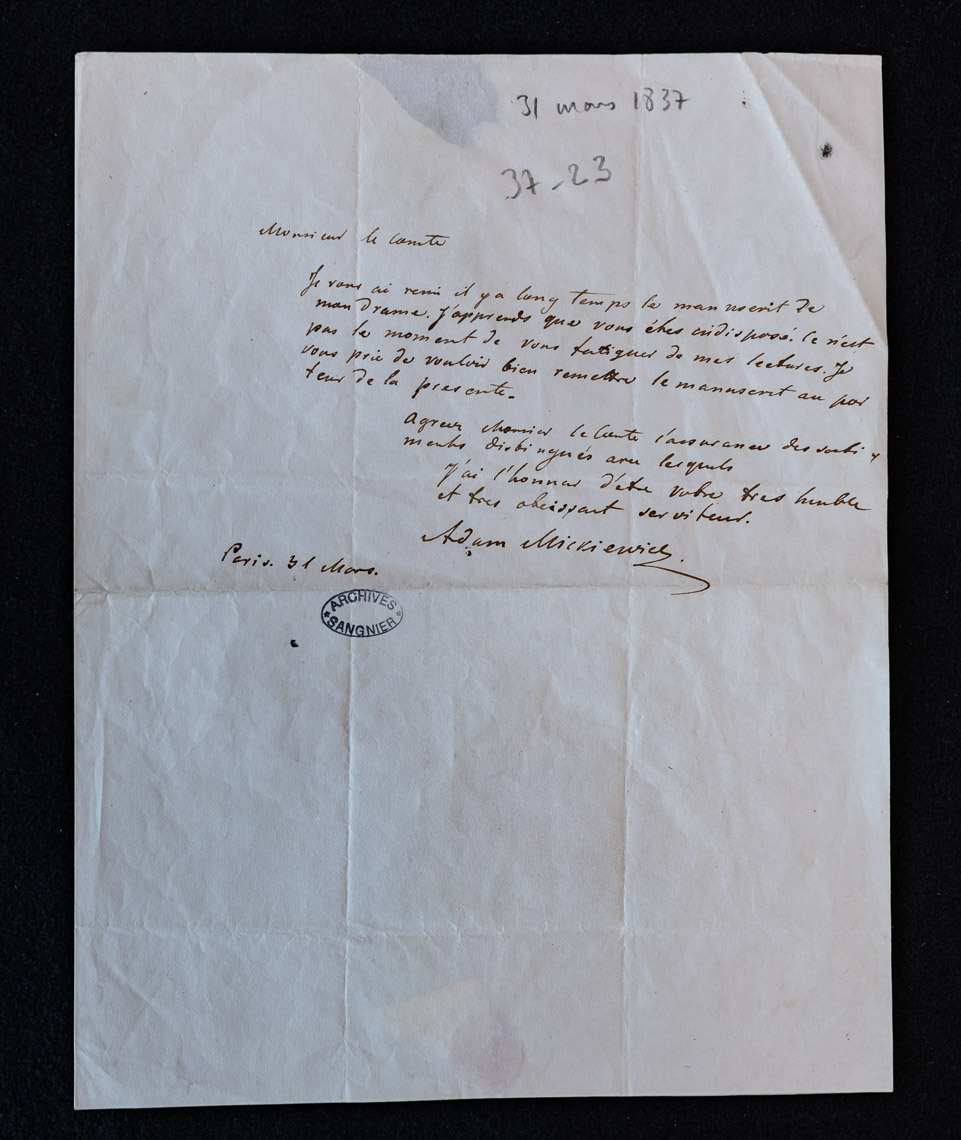 31 mars 1837
37-23
Monsieur le Comte
Je vous ai remi il y a long temps le manuscrit de
mon drame. J'apprends que vous êtes indisposé. Ce n'est
pas le moment de vous fatiguer de mes lectures. Je
vous prie de vouloir bien remettre le manuscrit au por
teur de la presente.
Agreez Monsieur le Comte l'assurance des senti
ments distingués avec lesquels
J'ai l'honneur d'etre votre tres humble
et tres obeissant serviteur.
Adam Mickiewicz.
Paris. 31 Mars.
ARCHIVES
SANGNIER